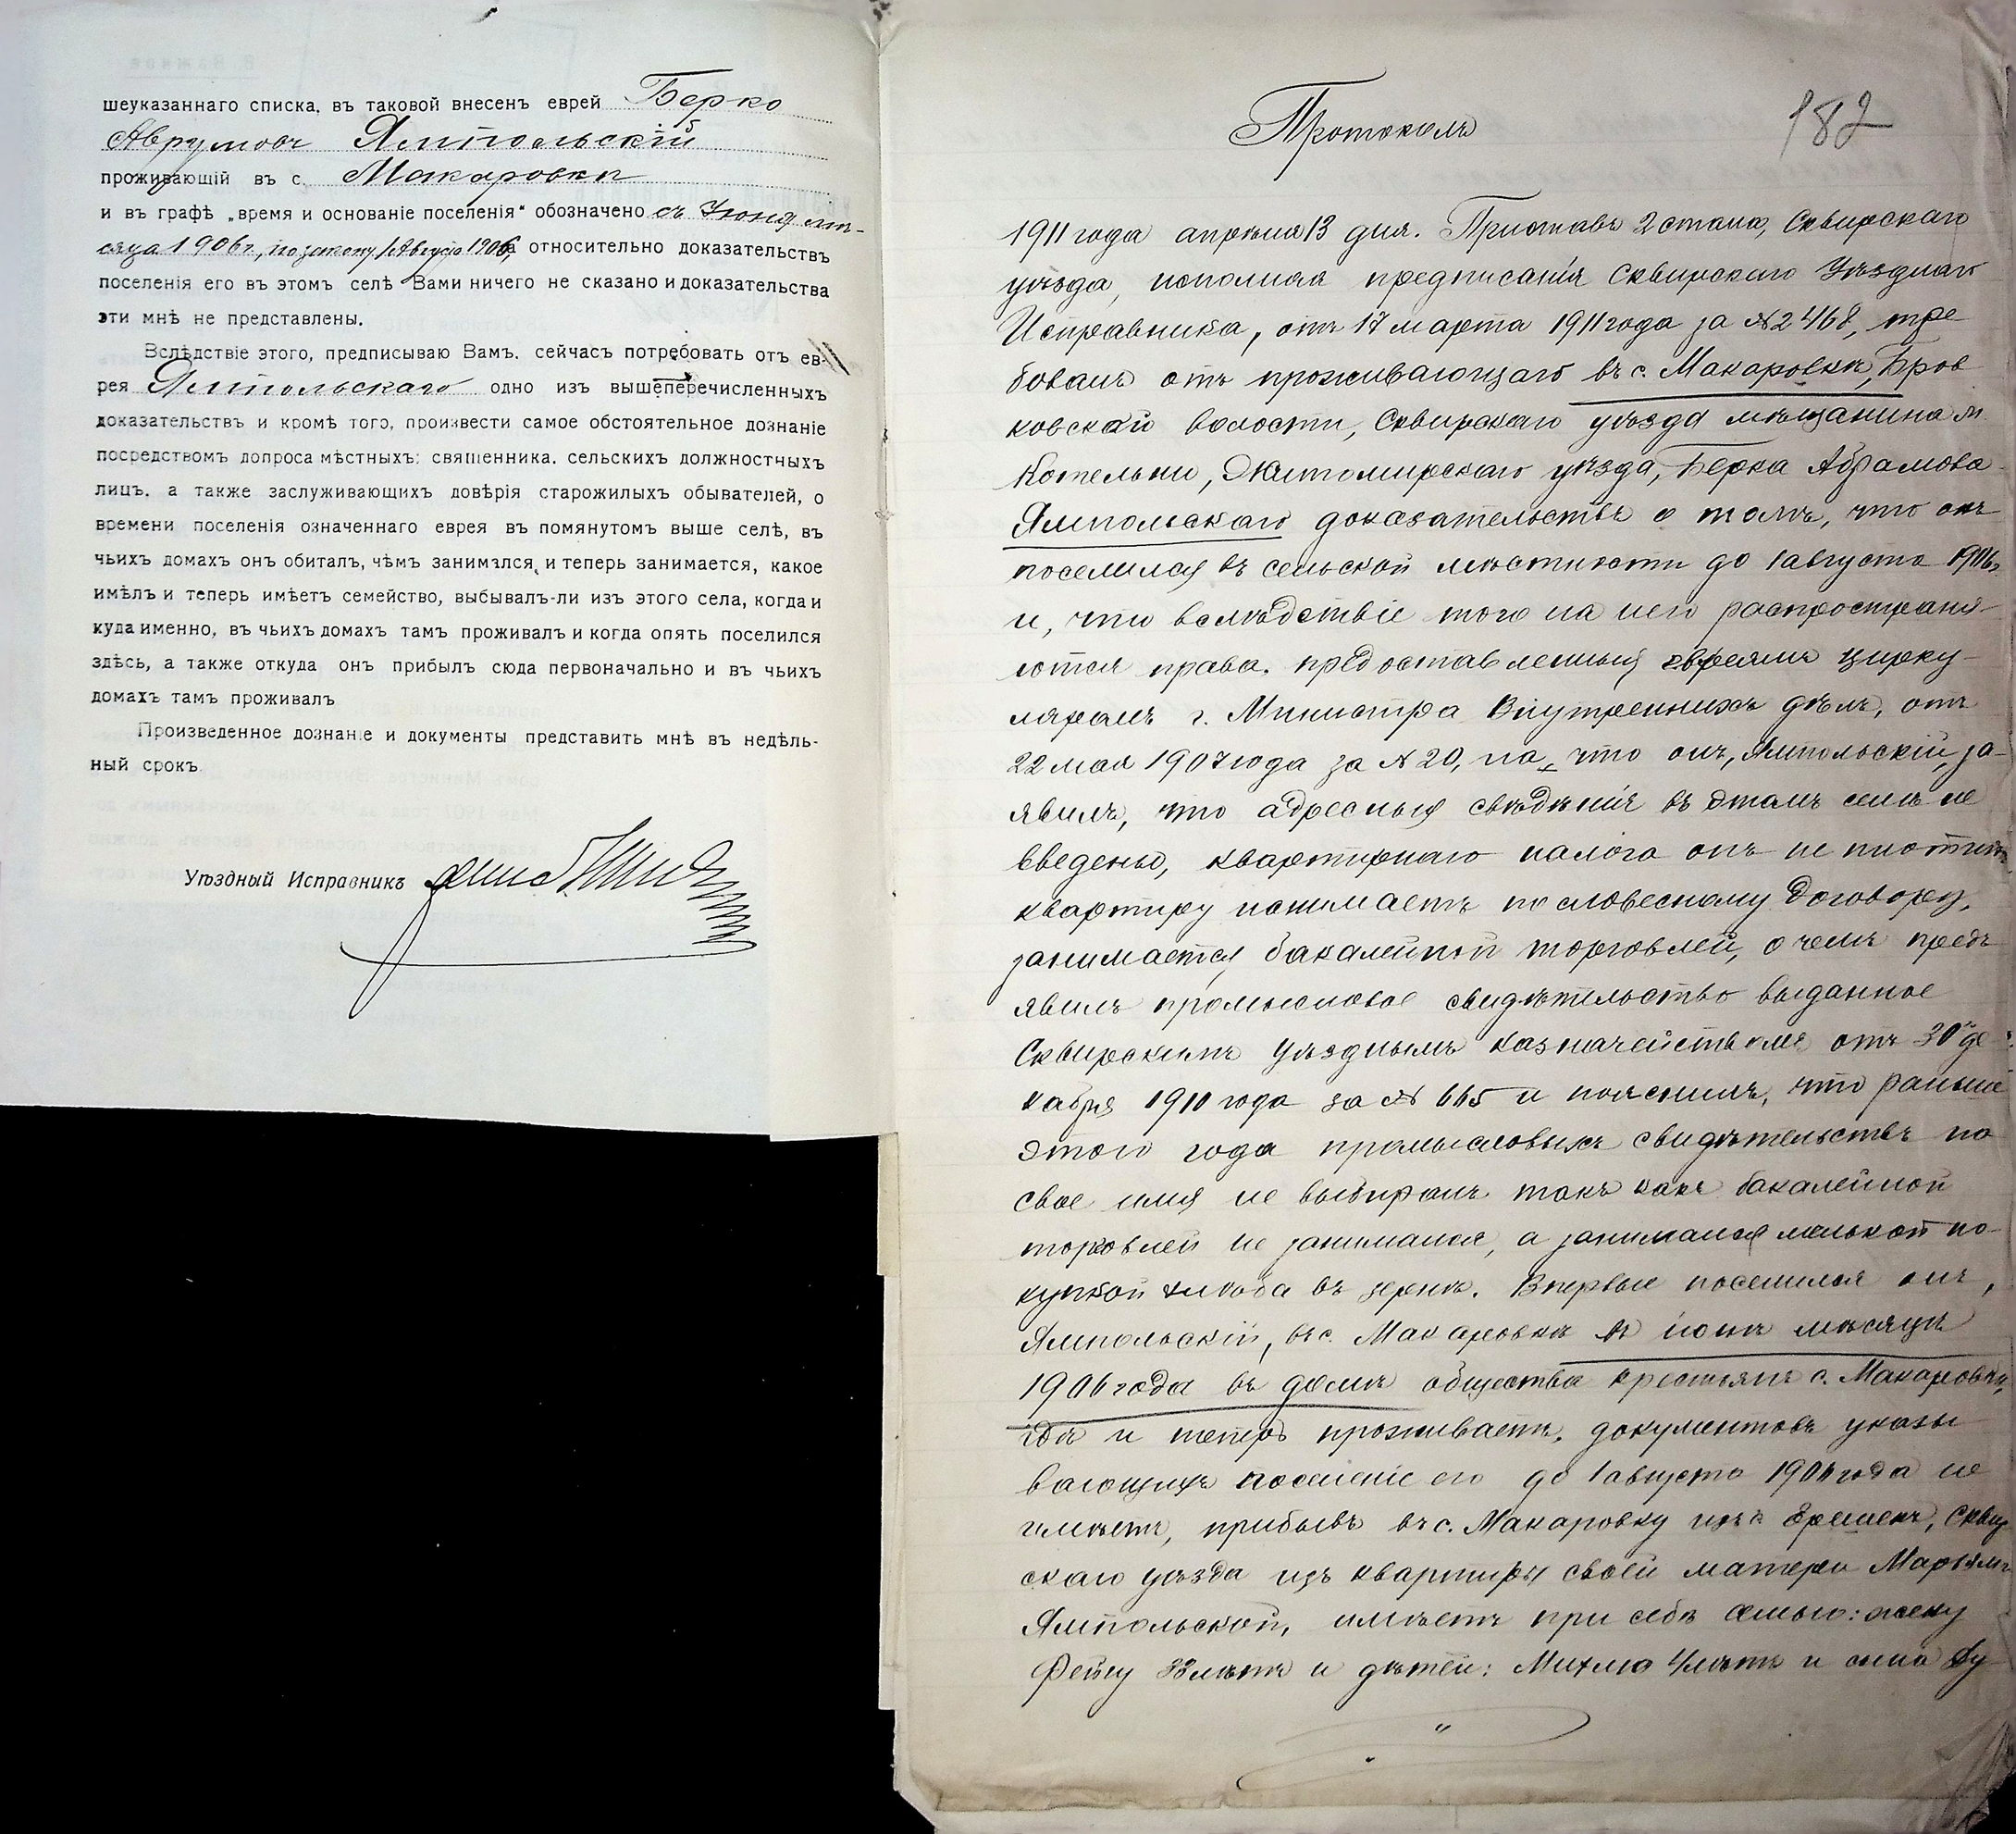 шеуказаннаго списка, въ таковой внесенъ еврей Берко
Аврумовъ Ямпольскій
проживающій въ с. Макаровкѣ
и въ графѣ „время и основаніе поселенія“ обозначено съ Іюня мѣ-
сяца 1906г., по закону 1 Августа 1906г. относительно доказательствъ
поселенія его въ этомъ селѣ Вами ничего не сказано и доказательства
эти мнѣ не представлены.
Вслѣдствіе этого, предписываю Вамъ, сейчасъ потребовать отъ ев-
рея Ямпольскаго одно изъ вышеперечисленныхъ
доказательствъ и кромѣ того, произвести самое обстоятельное дознаніе
посредствомъ допроса мѣстныхъ: священника, сельскихъ должностныхъ
лицъ, а также заслуживающихъ довѣрія старожилыхъ обывателей, о
времени поселенія означеннаго еврея въ помянутомъ выше селѣ, въ
чьихъ домахъ онъ обиталъ, чѣмъ занимался и теперь занимается, какое
имѣлъ и теперь имѣетъ семейство, выбывалъ-ли изъ этого села, когда и
куда именно, въ чьихъ домахъ тамъ проживалъ и когда опять поселился
здѣсь, а также откуда онъ прибылъ сюда первоначально и въ чьихъ
домахъ тамъ проживалъ
Произведенное дознаніе и документы представить мнѣ въ недѣль-
ный срокъ
Уѣздный Исправникъ
182
Протоколъ
1911 года апрѣля 13 дня. Приставъ 2 стана, Сквирскаго
уѣзда, исполняя предписанія Сквирскаго Уѣзднаго
Исправника, отъ 17 марта 1911 года за №2468, тре
бовалъ отъ проживающаго въ с. Макаровкѣ, Бров
ковской волости, Сквирскаго уѣзда мѣщанина м.
Котельни, Житомирскаго уѣзда, Берка Абрамова
Ямпольскаго доказательствъ о томъ, что онъ
поселился въ сельской мѣстности до 1 августа 1906г.
и, что вслѣдствіе того на него распространя-
ются права, предоставленныя евреямъ цирку-
ляромъ г. Министра Внутреннихъ дѣлъ, отъ
22 мая 1907 года за №20, на что онъ, Ямпольскій, за-
явилъ, что адресныя свѣдѣнія въ этомъ селѣ не
введены, квартирнаго налога онъ не платитъ,
квартиру нанимаетъ по словесному договору,
занимается бакалейной торговлей, о чемъ предъ
явилъ промысловое свидѣтельство выданное
Сквирскимъ уѣзднымъ казначействомъ отъ 30 де
кабря 1910 года за № 665 и пояснилъ, что раньше
этого года промысловыхъ свидѣтельствъ на
свое имя не выбиралъ такъ какъ бакалейной
торговлей не занимался, а занимался мелькой по-
купкой хлѣба въ зернѣ. Впервые поселился онъ,
Ямпольскій, въ с. Макаровкѣ въ іюнѣ мѣсяцѣ
1906 года въ домѣ общества крестьянъ с. Макаровки,
гдѣ и теперь проживаетъ, документовъ указы
вающихъ поселеніе его до 1 августа 1906 года не
имѣетъ, прибывъ въ с. Макаровку изъ Ерешекъ, Сквир
скаго уѣзда изъ квартиры своей матери Марьямъ
Ямпольской, имѣетъ при себѣ семью: жену
Фейгу 33 лѣтъ и дѣтей: Михлю 4 лѣтъ и сына